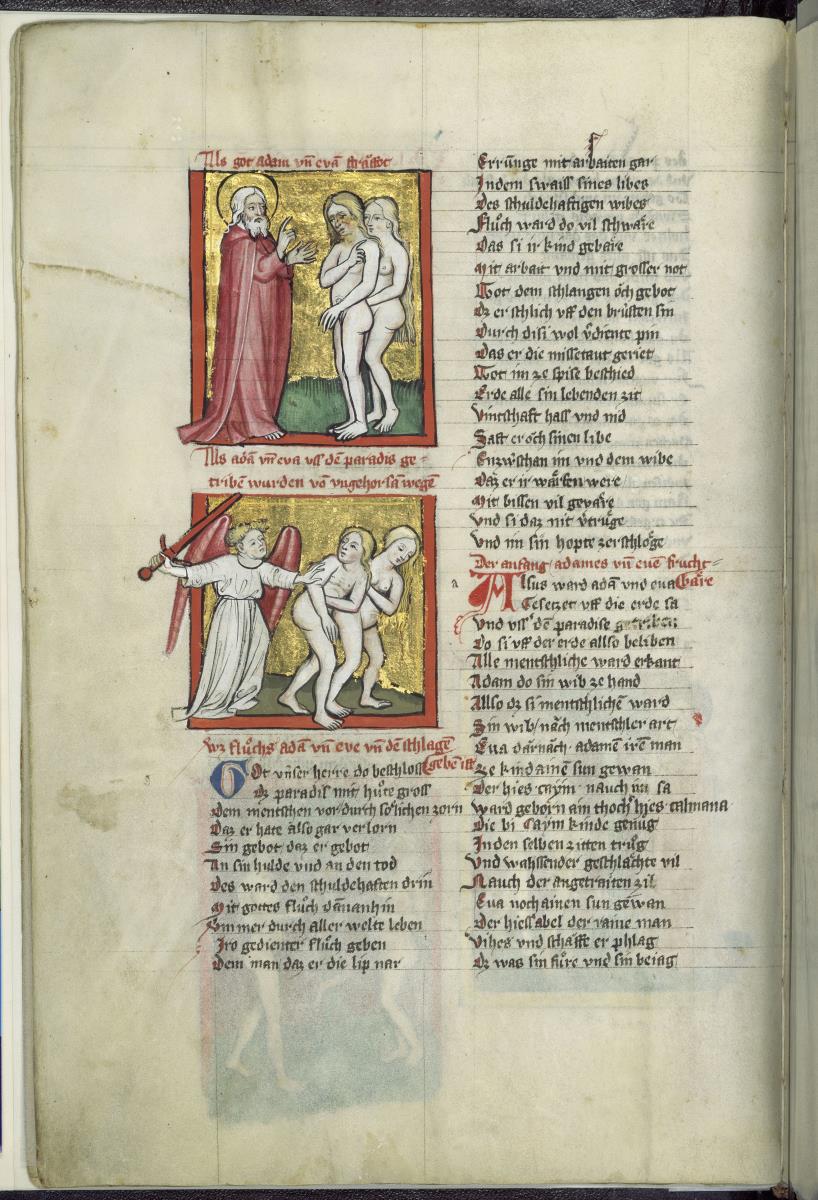 Als got adam vn̄ evā strāffot
Als adā vn̄ eva vss dē paradis ge-
tribē wurden vō vngehorsā wegē
wz fluͦchs adā vn̄ eve vn̄ dē schlagē
gebē ist
Got vnser herre do beschlos
Dz paradis mit huͦte gros
dem mentschen vor durch soͤlichen zorn
Daz er hate also gar verlorn
Sin gebot daz er gebot
An sin hulde vnd an den tod
Des ward den schuldehaften drin
Mit gottes fluͦch dānanhin
Immer durch aller welte leben
Iro gedienter fluͦch geben
Dem man daz er die lip nar
Errunge mit arbaiten gar
Indem swaiss sines libes
Des schuldehaftigen wibes
Fluͦch ward do vil schwāre
Das si ir kind gebāre
Mit arbait vnd mit grosser not
Got dem schlangen och gebot
Dz er schlich vff den brústen sin
Durch disi wol v̄diente pin
Das er die missetaut geriet
Got im ze spise beschied
Erde alle sin lebenden zit
Vintschaft hass vnd nid
Saft er och sinen libe
Enzwschan im vnd dem wibe
Daz er ir wārken were
Mit bissen vil gevāre
Vnd si daz nit v̄trúge
Vnd im sin hopte zerschloͤge
Der anfang adames vn̄ even frucht-
bāre
Alsus ward adā vnd eua
Gesetzet vff die erde sa
Vnd vss dē paradise getriben
Do si vff der erde allso beliben
Alle mentschliche ward erkant
Adam do sin wib ze hand
Allso dz si mentschlichē ward
Sin wib nāch mentschler art
Eua dārnāch adamē irē man
Ze kind ainē sun gewan
Der hies caym nauch im sa
Ward geborn ain thoch hies calmana
Die bi Caym kinde genuͦg
In den selben zitten truͦg
Vnd wahssender geschlāchte vil
Nauch der angetraiten zil
Eua noch ainen sun gewan
Der hiess abel der raine man
Vihes vnd schaffe er phlag
Dz was sin fuͦre vnd sin beiag